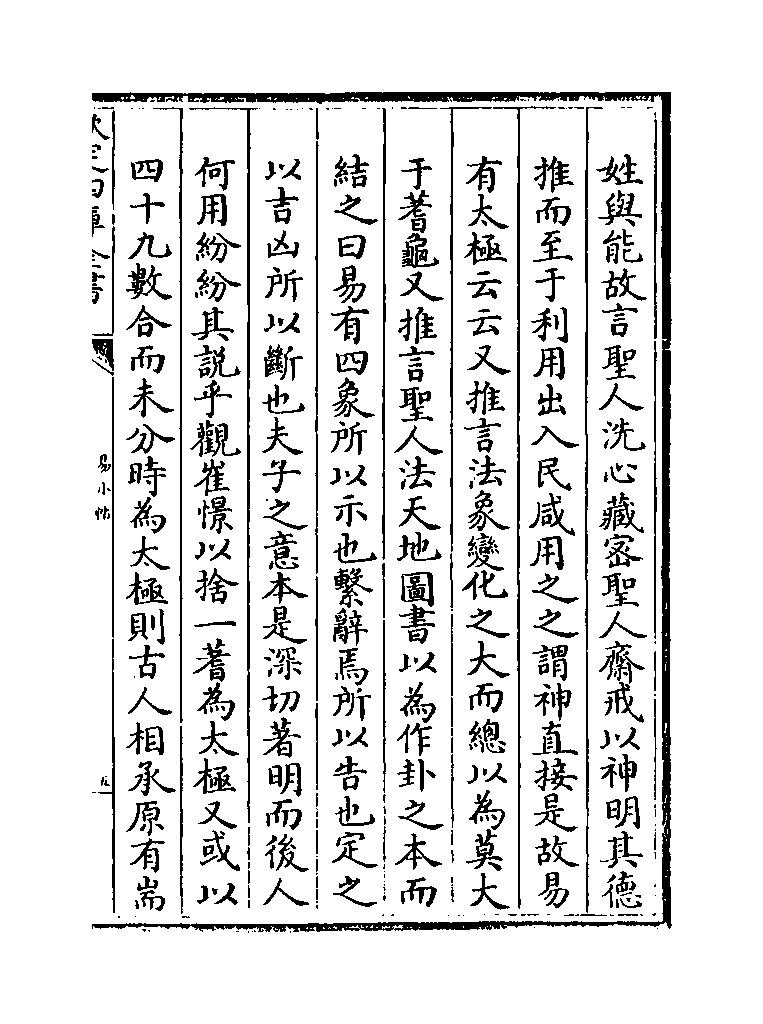 姓與能故言聖人洗心藏密聖人齋戒以神明其德
推而至于利用出入民咸用之之謂神直接是故易
有太極云云又推言法象變化之大而總以為莫大
于蓍龜又推言聖人法天地圖書以為作卦之本而
結之曰易有四象所以示也繫辭焉所以告也定之
以吉凶所以斷也夫子之意本是深切著明而後人
何用紛紛其說乎觀崔憬以捨一蓍為太極又或以
四十九數合而未分時為太極則古人相承原有耑
欽定四庫全書
易小帖
五